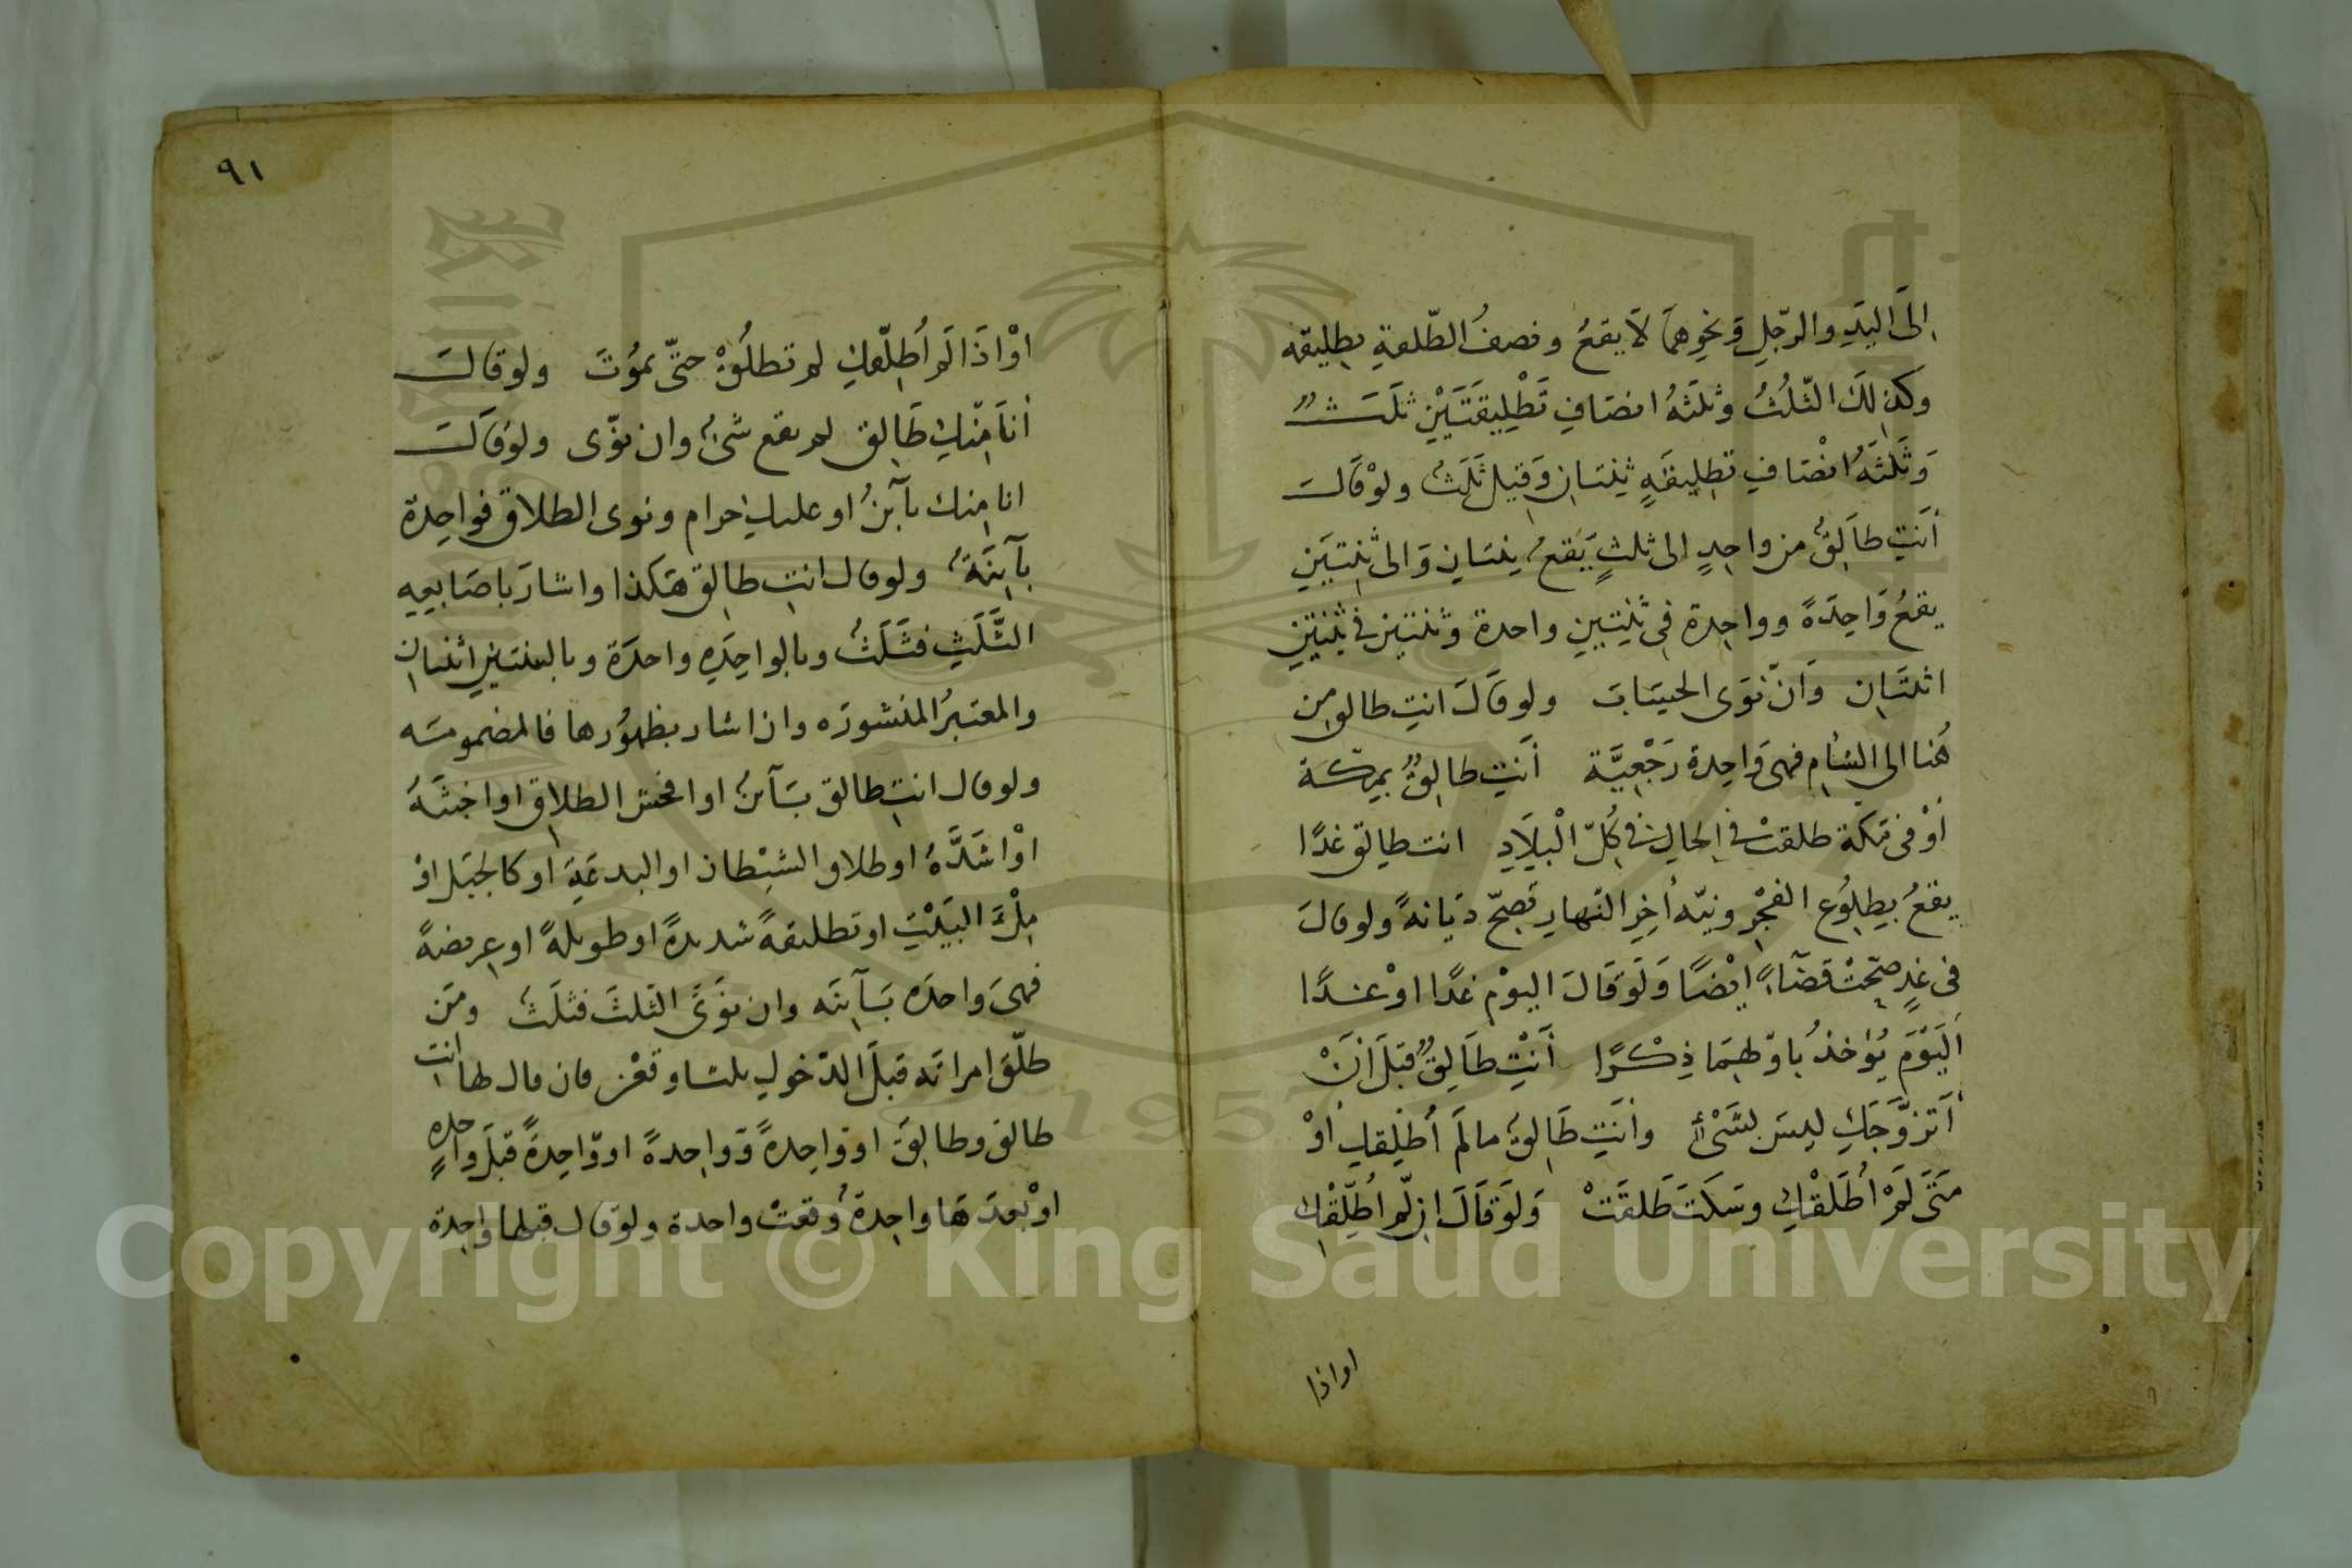 الىَ اليَدِ والرّجلِ وَنحوِهمَا لاَ يقعُ ونصفُ الطّلقةِ تطليقه
وكذلكَ الثّلُثُ وثلثَهُ انصَافِ تَطْلِيقَتَيْنِ ثلَثٌ
وَثَلَثَهُ انْصَافِ تطليقَهٍ ثنتَانِ وَقيل ثَلَثٌ ولوْقَالَ
أنَتِ طاَلِقٌ من واحِدٍ الى ثلثٍ يَقعُ ثنتَانِ وَالى ثِنتيَنِ
يقعُ وَاحِدَةً وواحِدة فى ثنِتيَنِ واحدة وثنتين فى ثِنْتينِ
اثنتَانِ وَانْ نَوَى الحِسَابَ ولو قَالَ انتِ طالق مِن
هُنا الى الشامِ فهىَ وَاحِدة رَجْعِيَّة أنَتِ طالِقٌ بمِكّة
أوْ فى مَكّة طلقتْ فى الحالِ فى كُلِّ الْبِلاَدِ انت طالِق غدًا
يقعُ بِطلُوُعِ الفجْرِ ونيّه أخِرِ النّهارِ تصِحّ دِيَانهً ولو قالَ
فى غدٍ صحّتْ قضَآءً ايْضًا وَلَوْ قَالَ اليوْم غدًا اوْ غدًا
اَليَوْمَ يُؤخذُ باوّلهِمَا ذِكْرًا أنَتِ طَالِقٌ قبَلَ أنْ
أتزوَّجَكِ ليسَ بشَىْءٍ وأنتِ طَالِقٌ مالَمْ أُطلِّقكِ أوْ
مَتَى لَمْ أُطَلِّقْكِ وسَكَتَ طَلقَتْ وَلَوْ قَالَ اِنْ لّمْ أُطَلِّقْكِ
او اذا
٩١
اوْ اذَا لَمْ أُطلّقكِ لم تطلُقْ حتّى يموُتَ ولو قالَ
أنَا مِنْكِ طَالِق لم يقع شىءٌ وان نوّى ولوْ قَالَ
انا مِنك بآئنٌ او عليكِ حرام ونوى الطلاق فواحِدة
بآئِنَةٌ ولو قال انتِ طالِق هَكذا واشارَ باصَابعِهِ
الثَّلَثِ فثَلَثٌ وبالواحِدَهِ واحدَة وبالثنتينِ اثنتانِ
والمعتبرُ المنشورَه وان اشار بظهُوُرها فالمضمومَه
ولو قال انتِ طالق بَآئنٌ او افحش الطلاقِ او اخبثَهُ
اوْ اشَدَّهُ او طلاق الشيْطان او البدعَةِ او كالجبَل اوْ
مِلْءَ البَيْتِ او تطليقةً شديدةً او طويلةً او عريضةً
فهىَ واحدَه بَآئِنَه وان نوَىَ الثّلثَ فثلَثٌ ومَن
طلّقَ امراتَه قبلَ الدّخولِ ثلثا وقعْن فان قال لها انت
طالق وطالِق او وَاحِدةً وَواحِدةً او وّاحِدَةً قبَل واحدهٍ
اوْ بعدَهَا واحِدةٌ وقعتْ واحدة ولوْ قال قبلها واحِدة
Copyright © King Saud University
1957